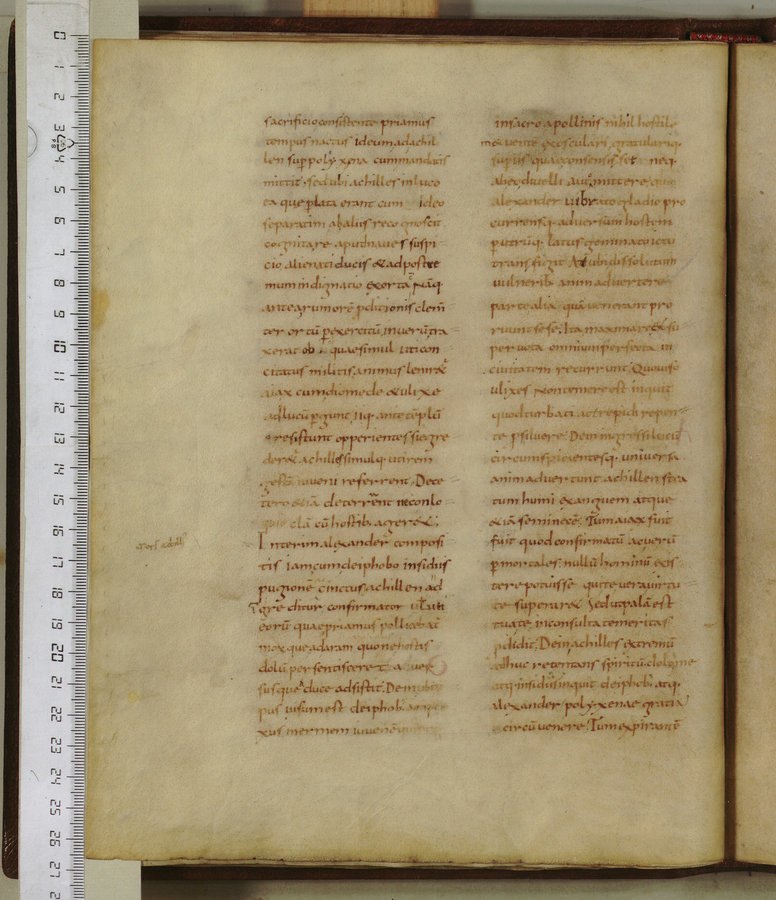 sacrificio consistente priamus
tempus nactus Ideum ad achil
len sup poly xena cum mandatis
mittit, sed ubi achilles in luco
ea que plata erant cum ideo
separatim ab aliis recognoscit
cognita re aput naues suspi
cio alienati ducis & ad postre
mum indignatio exorta
ante a rumorē pditionis clem
ter ortū p exercitū in uerū tra
xerat ob quae simul uti con
citatus militis animus lenir&
aiax cum diomede & ulixe
ad lucū pgunt, iiq ante tēplū
resistunt opperientes si egre
der& achilles simulq uti rem
iuueni referrent. Dece
tero &iā deterrent in conlo
clā cū hostib agere&;
Interim alexander composi
tis iam cum deiphobo insidiis
pugione cinctus achillen ad
greditur confirmator uti
eorū quae priamus pollicebat
mox que ad aram quo ne hostis
dolū persentisceret
susque a duce adsistit. Dein ubi
pus uisum est deiphob
xus inermem iuuenē
mors achill
in sacro apollinis nihil hostile
m&uente exosculari, gratularique
super his quae consensisset neq
ab eo diuelli aut omittere
alexander librato gladio pro
currensq aduersum hostem
p utrūq latus geminato ictu
transfigit. At ubi dissolutum
uulneribus animaduertere
parte alia quā uenerant pro
riuunt sese; Ita maxima re & su
per uota omnium perfecta in
ciuitatem recurrunt. Quo uiso
ulixes non temere est inquit
quod turbati ac trepidi repen
te psiluere. Dein ingressi lucū
circumspicientesq uniuersa
animaduertunt achillen stra
tum humi exanguem atque
&iā seminecē. Tum aiax fuit
fuit quod confirmatū ac uerū
p mortales nullū hominū exis
tere potuisse qui te uera uirtu
te superare& sed ut palā est
tua te inconsulta temeritas
pdidit; Dein achilles extremū
adhuc retentans spiritū dolo me
atq insidiis inquit deiphob atq
alexander poly xenae gratia
circū uenere. Tum expirantē